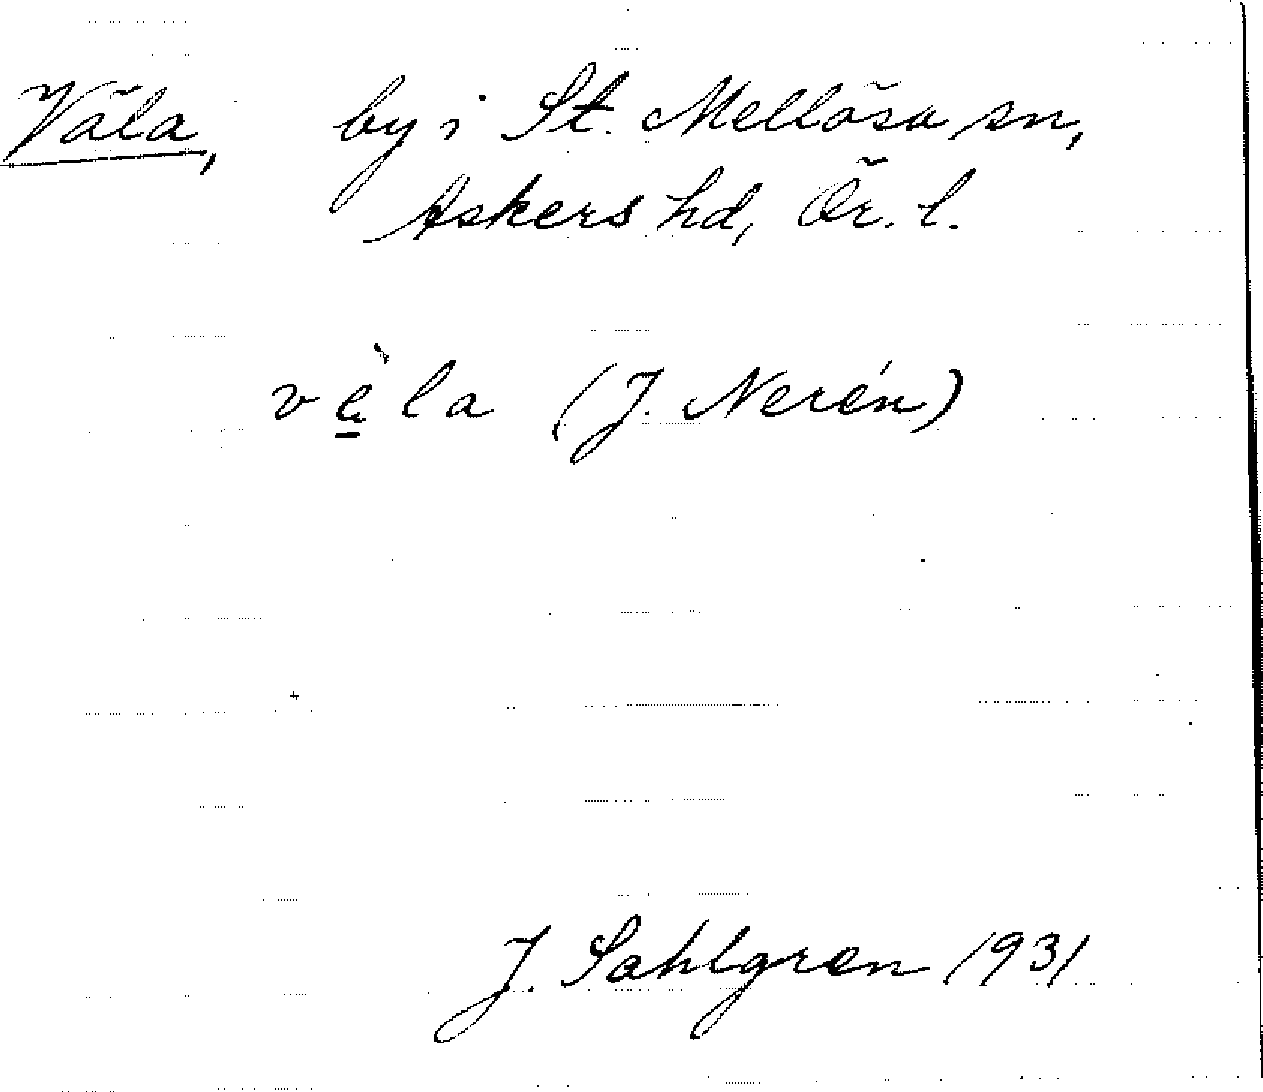 Väla, by i St. Mellösa sn,
Askers hd, Ör. l.
vè̱la (J. Nerén)
J. Sahlgren 1931